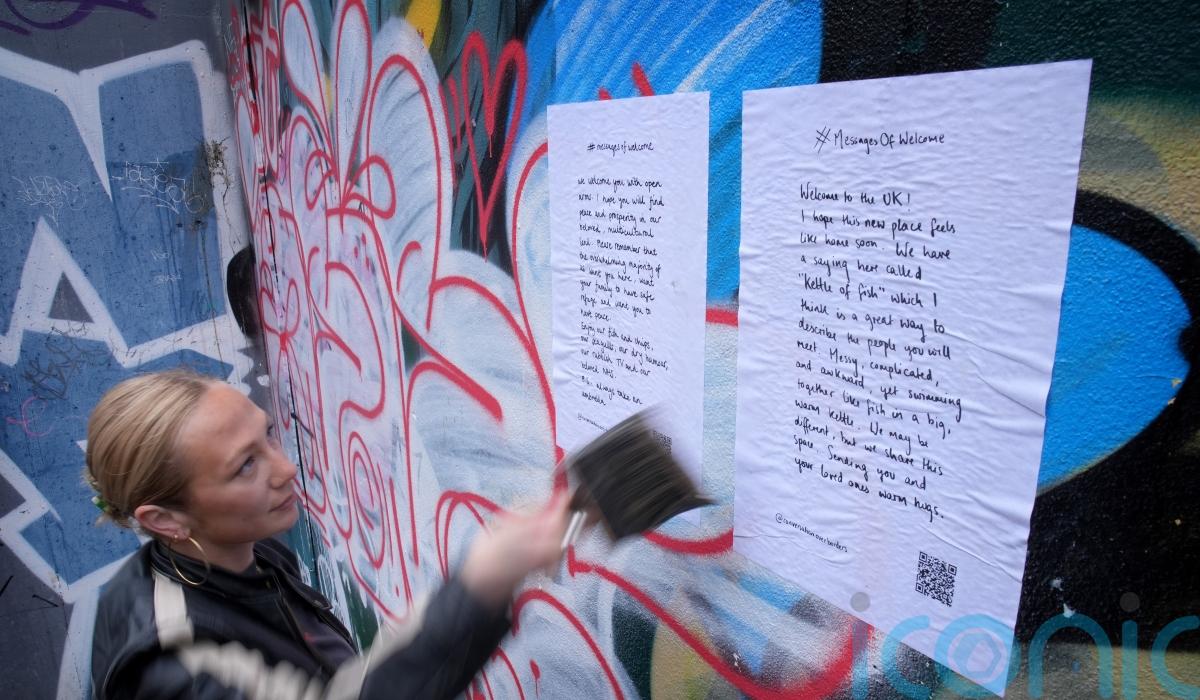 #messagesofwelcome
we welcome you with open
arms. I hope you will find
peace and prosperity in our
beloved, multicultural
land. Please remember that
the overwhelming majority of
us want you here, want
your family to have safe
refuge and want you to
have peace.
Enjoy our fish and chips,
our seagulls, our dry humour,
our rubbish TV and our
beloved NHS.
P.S. always take an
umbrella
#MessagesOfWelcome
Welcome to the UK!
I hope this new place feels
like home soon. We have
a saying here called
"Kettle of fish" which I
think is a great way to
describe the people you will
meet. Messy, complicated,
and awkward, yet swimming
together like fish in a big,
warm kettle. We may be
different, but we share this
space. Sending you and
your loved ones warm hugs.
@conversationoverborders
iconic